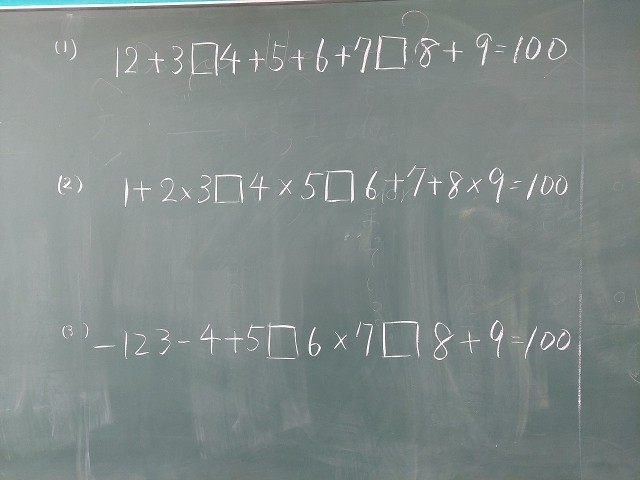 (1) 12+3□4+5+6+7□8+9=100
(2) 1+2×3□4×5□6+7+8×9=100
(3) -123-4+5□6×7□8+9=100